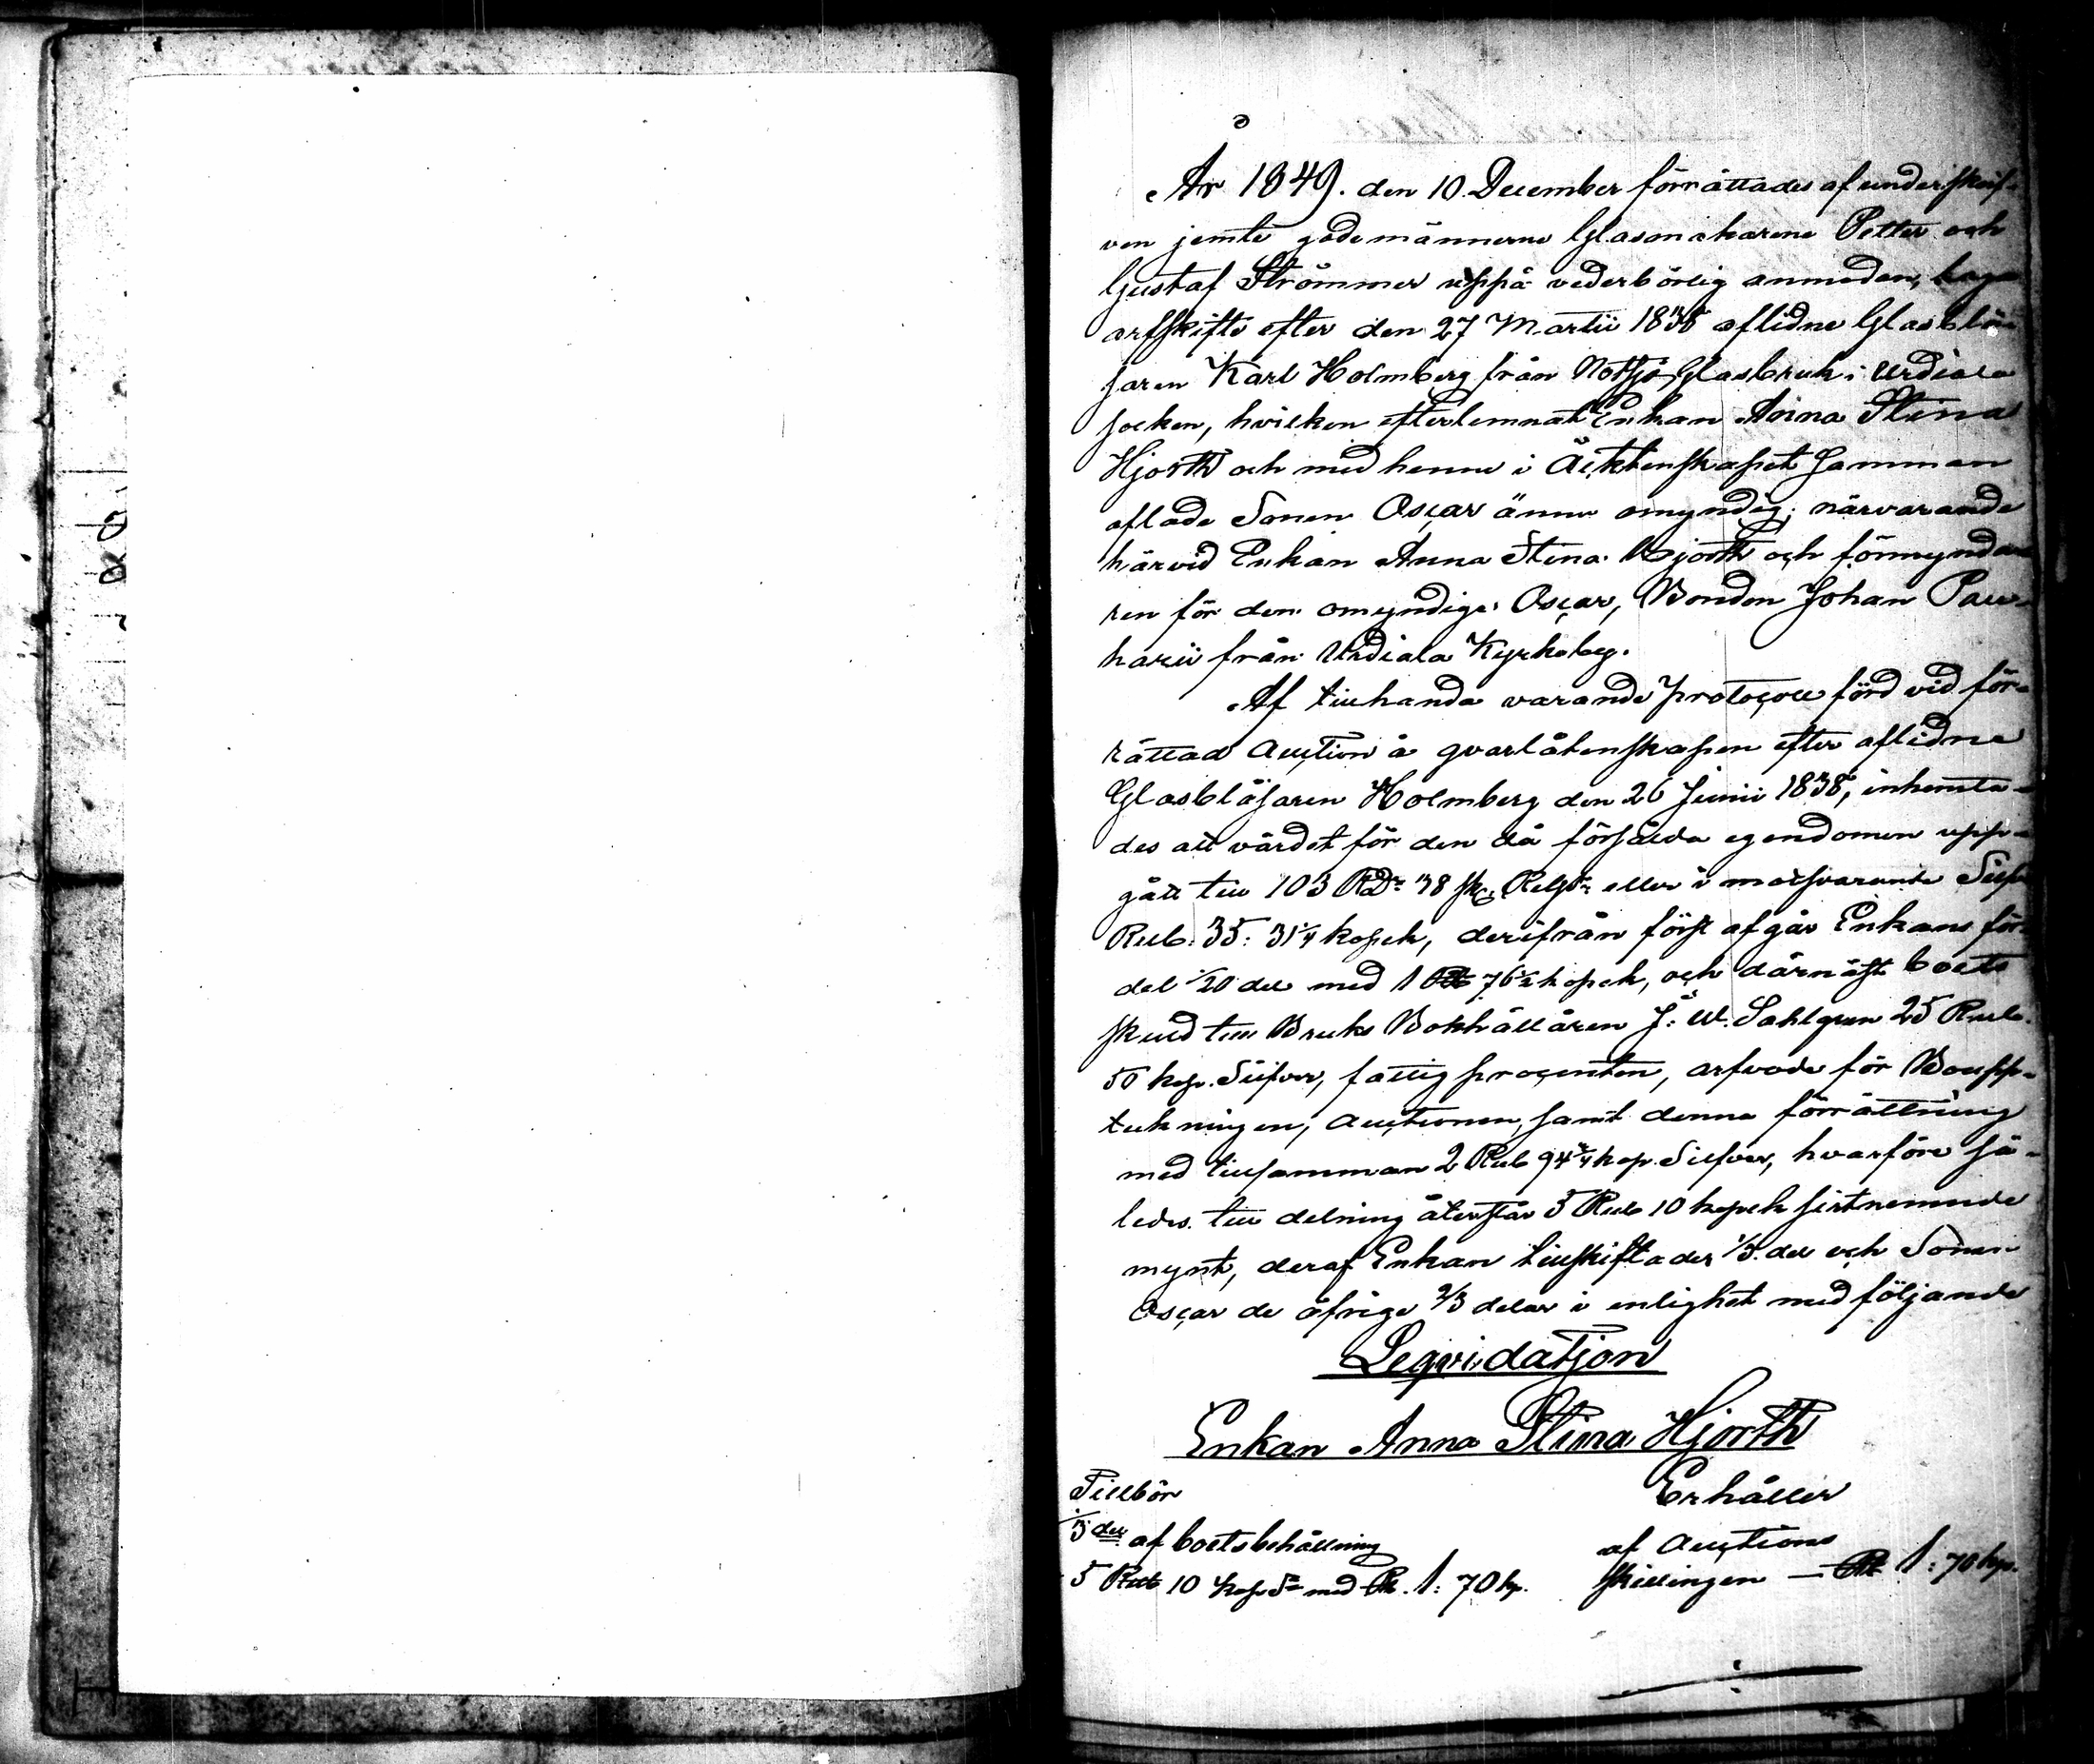 År 1849. den 10 December förrättades af underskrif-
ven jemte gode männerne Glasmakarene Petter och
Gustaf Strömmer uppå vederbörlig anmodan, laga
arfskifte efter den 27 Martii 1838 aflidne Glasblå-
saren Karl Holmberg från Notsjö Glasbruk i Urdiala
socken, hvilken efterlemnat Enkan Anna Stina
Hjorth och med henne i Äcktenskapet samman
aflade Sonen Oscar ännu omyndig; närvarande
härvid Enkan Anna Stina Hjorth och förmynda-
ren för den omyndige Oscar, Bonden Johan Pau-
harii från Urdiala Kyrkoby.
Af tillhanda varande protocoll förd vid för-
rättad Auction å qvarlåtenskapen efter aflidne
Glasblåsaren Holmberg den 26 Junii 1838, inhemta-
des att värdet för den då försålda egendomen upp-
gått till 103 RD:r 38 sk. Rgs:r eller i motsvarande Silfv
Rub. 35: 31 1/4 kopek, derifrån först afgår Enkans för-
del 1/20 del med 1 Rub 76 1/2 kopek, och därnäst boets
skuld till Bruks Bokhållaren J: W. Sahlgren 25 Rub.
50 kop. Silfver, fattig procenten, arfvode för Boupp-
tekningen, Auctionen, samt denna förrättning
med tillsamman 2 Rub 94 3/4 kop. Silfver, hvarföre så-
ledes till delning återstår 5 Rub 10 kopek sistnemnde
mynt, deraf Enkan tillskiftades 1/3 del och Sonen
Oscar de öfrige 2/3 delar i enlighet med följande
Leqvidatjon
Enkan Anna Stina Hjorth
Tillbör Erhåller
1/3 del af boets behållning af Auctions
5 Rub 10 kop Sr med Rb. 1: 70 kp. skillingen — Rb 1: 70 kp.